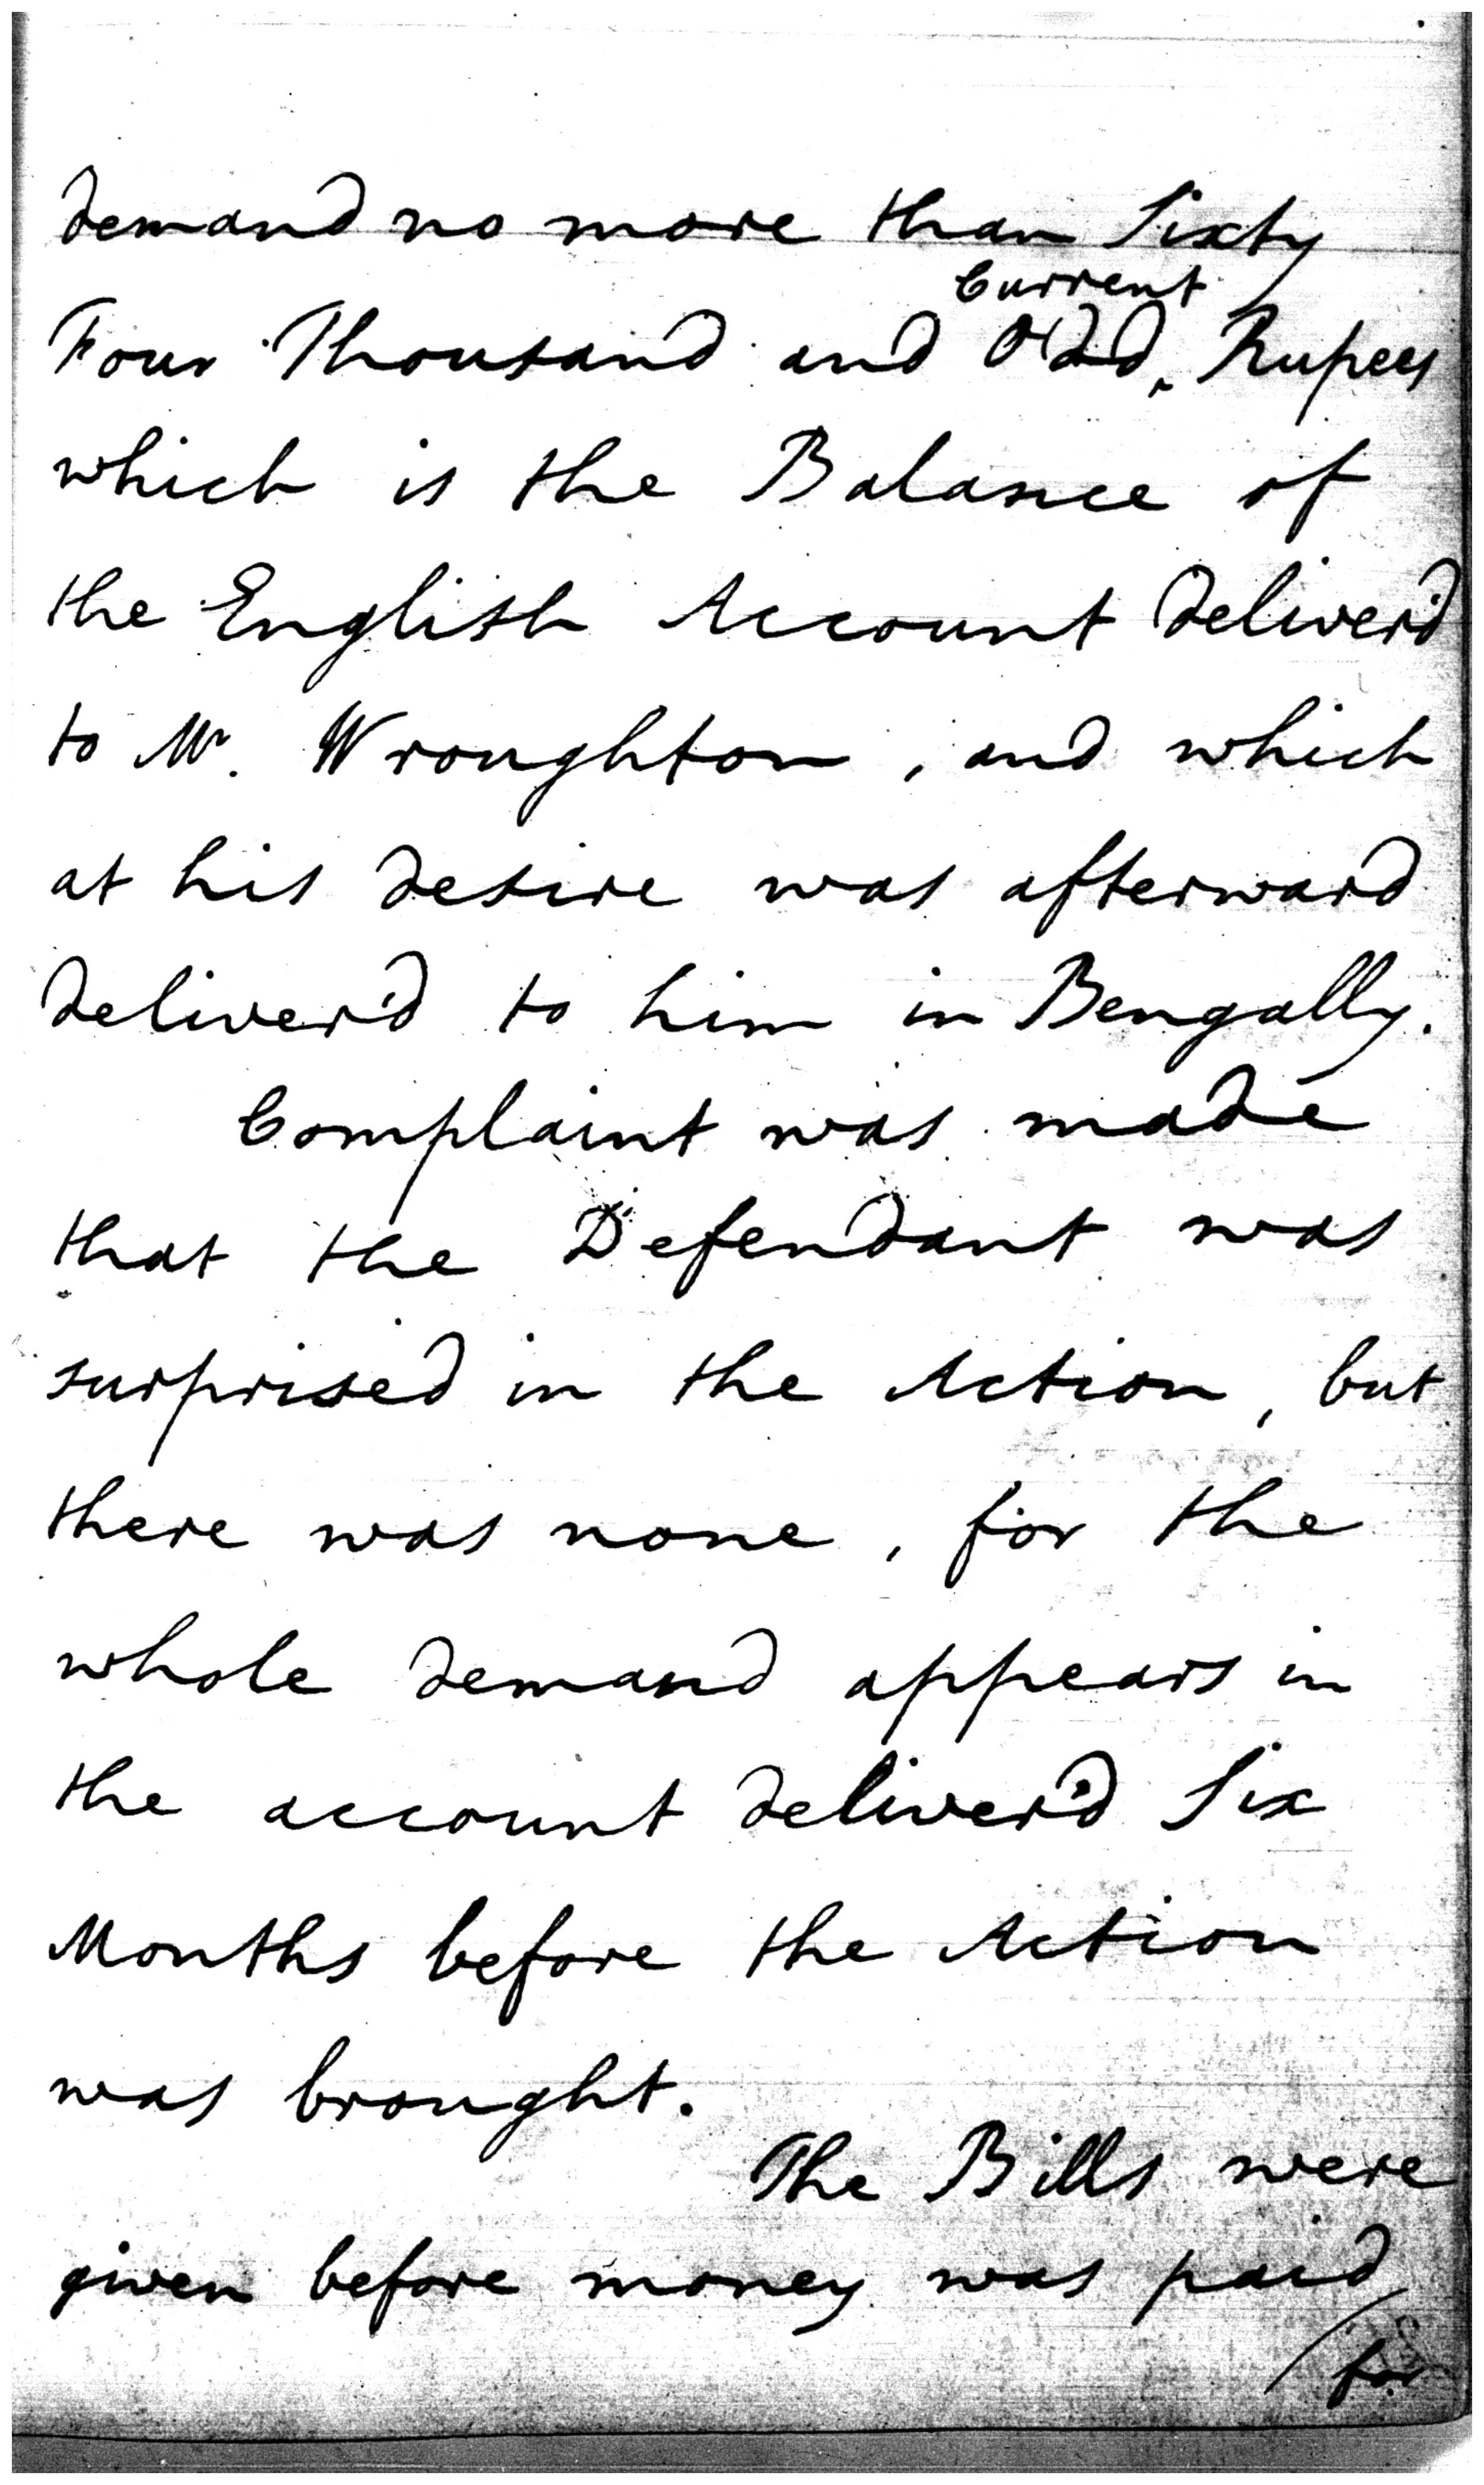 demand no more than Sixty
Current
Four Thousand and Odd ‸ Rupees
which is the Balance of
the English Account deliver'd
to Mr. Wroughton, and which
at his desire was afterward
deliver'd to him in Bengally.
Complaint was made
that the Defendant was
surprised in the Action, but
there was none, for the
whole demand appears in
the account deliver'd Six
Months before the Action
was brought.
The Bills were
given before money was paid
/for